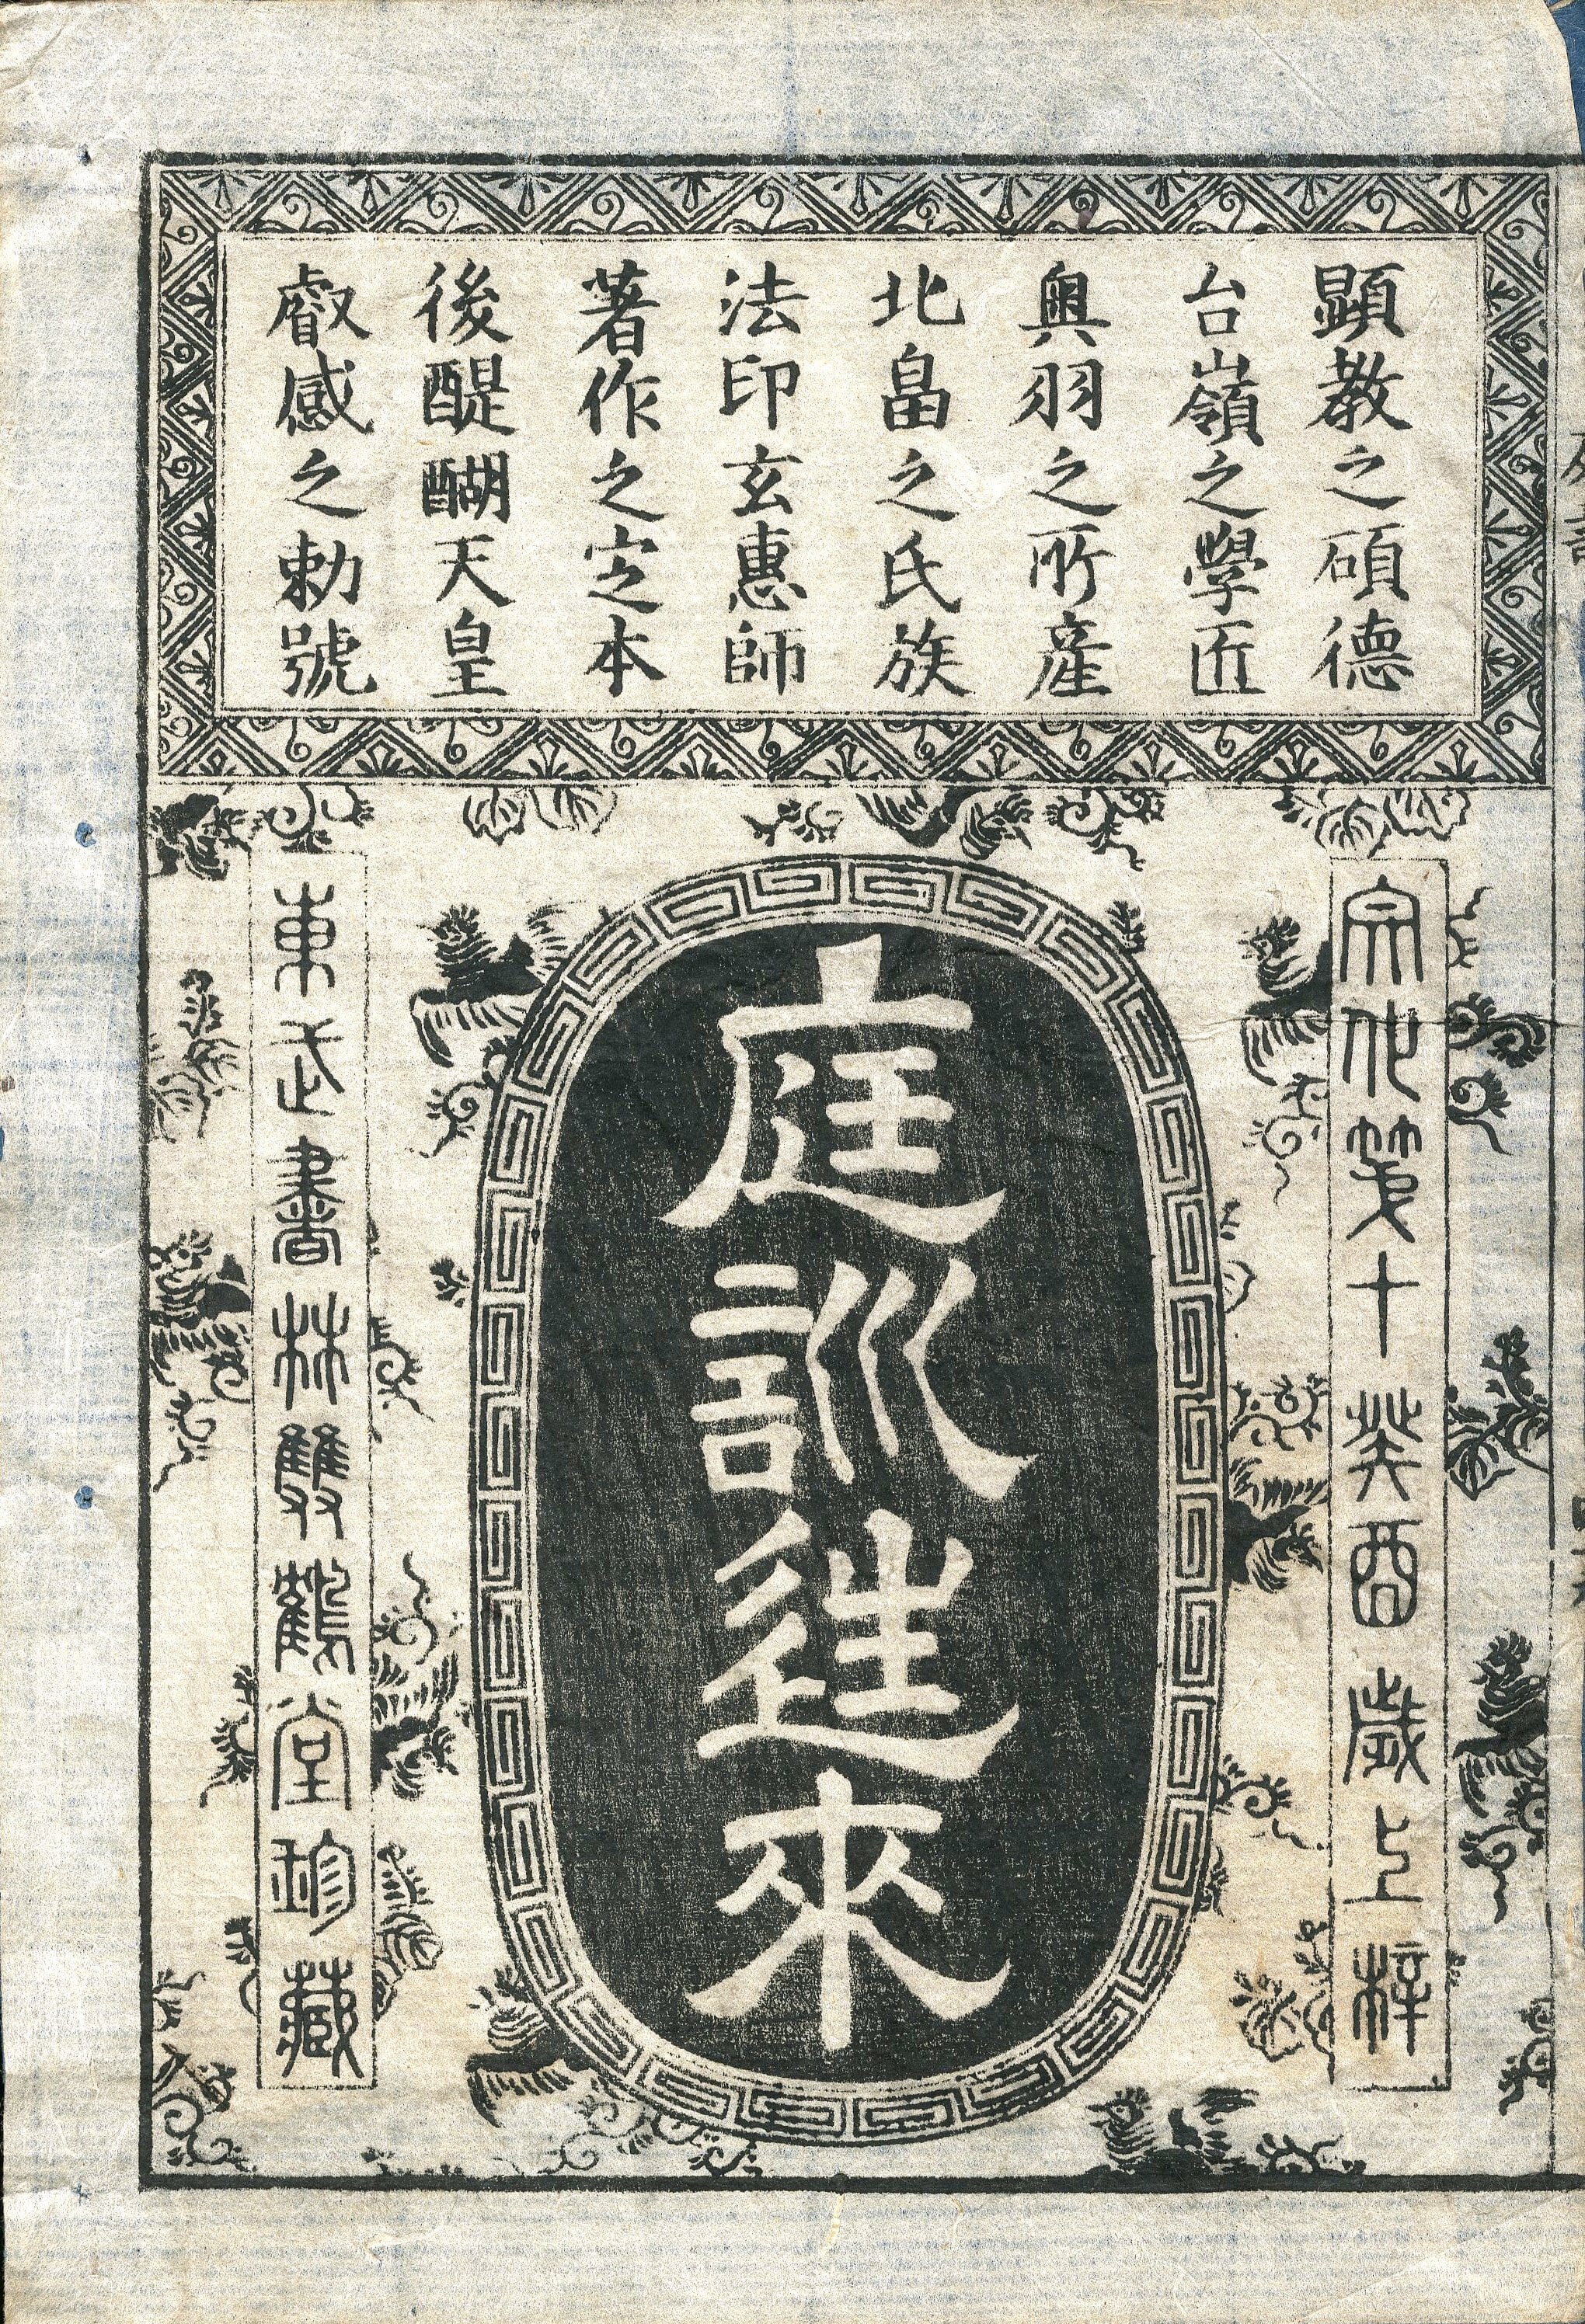 顕教之碩德
台嶺之學匠
奥羽之所産
北畠之氏族
法印玄惠師
著作之定本
後醍醐天皇
叡感之勅號
文化第十癸酉歳上梓
庭訓徃來
東武書林雙鶴堂珍藏